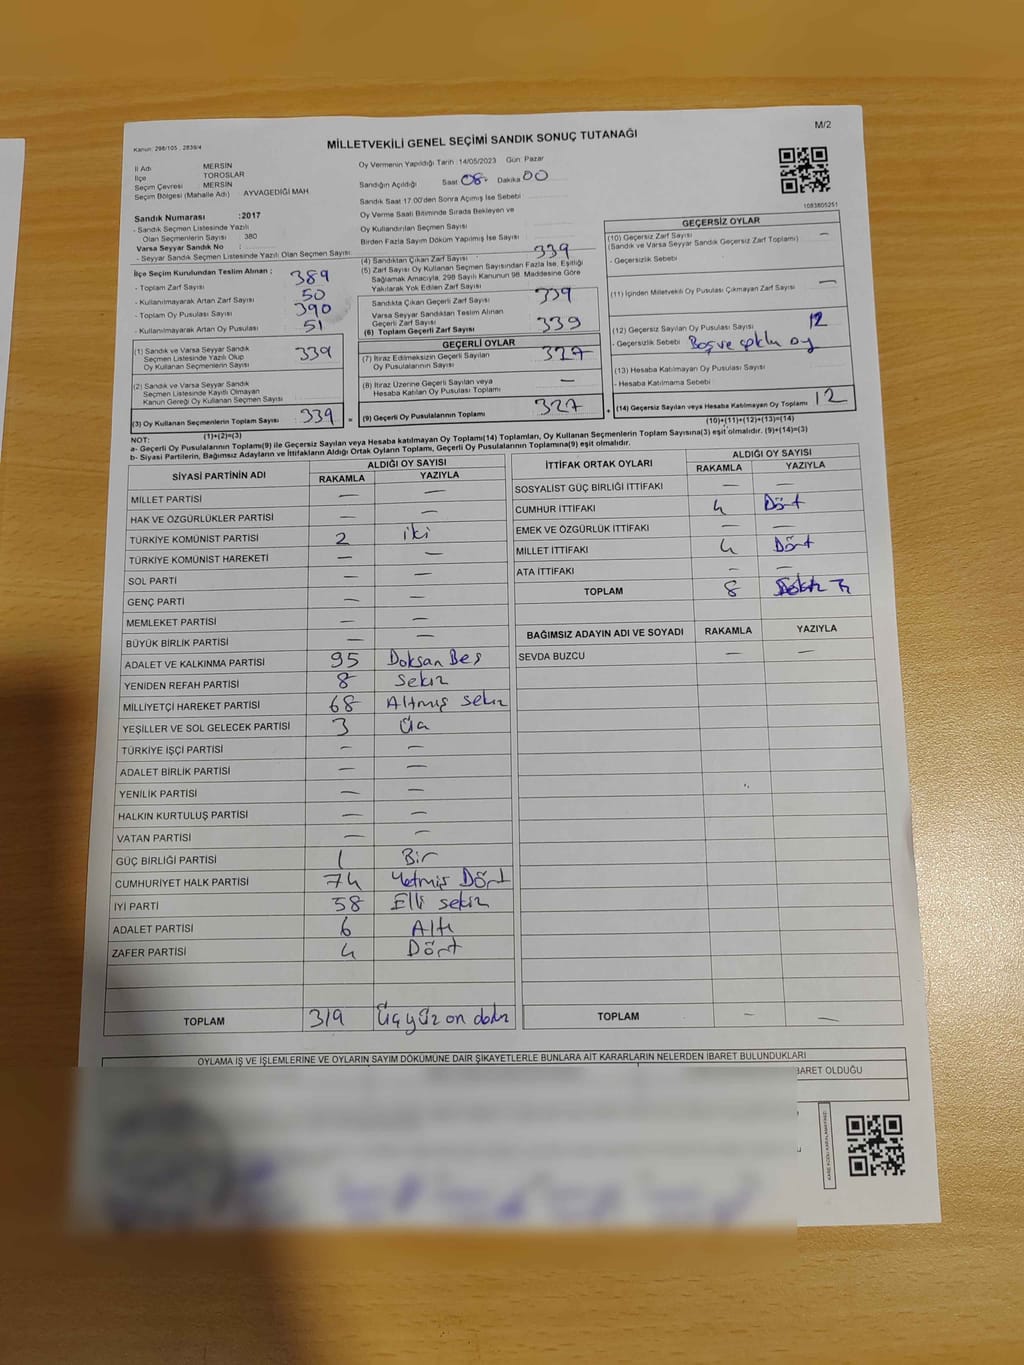 M/2
Kanun: 298/105 , 2839/4
MİLLETVEKİLİ GENEL SEÇİMİ SANDIK SONUÇ TUTANAĞI
1083805251
İl Adı MERSİN
İlçe TOROSLAR
Seçim Çevresi MERSİN
Seçim Bölgesi (Mahalle Adı) AYVAGEDİĞİ MAH.
Sandık Numarası :2017
- Sandık Seçmen Listesinde Yazılı
Olan Seçmenlerin Sayısı 380
Varsa Seyyar Sandık No :
- Seyyar Sandık Seçmen Listesinde Yazılı Olan Seçmen Sayısı
Oy Vermenin Yapıldığı Tarih :14/05/2023 Gün: Pazar
Sandığın Açıldığı Saat 08. Dakika 00
Sandık Saat 17.00'den Sonra Açımış İse Sebebi
Oy Verme Saati Bitiminde Sırada Bekleyen ve
Oy Kullandırılan Seçmen Sayısı
Birden Fazla Sayım Döküm Yapılmış İse Sayısı
İlçe Seçim Kurulundan Teslim Alınan :
- Toplam Zarf Sayısı 389
- Kullanılmayarak Artan Zarf Sayısı 50
- Toplam Oy Pusulası Sayısı 390
- Kullanılmayarak Artan Oy Pusulası 51
(1) Sandık ve Varsa Seyyar Sandık
Seçmen Listesinde Yazılı Olup
Oy Kullanan Seçmenlerin Sayısı 339
(2) Sandık ve Varsa Seyyar Sandık
Seçmen Listesinde Kayıtlı Olmayan
Kanun Gereği Oy Kullanan Seçmen Sayısı
(3) Oy Kullanan Seçmenlerin Toplam Sayısı 339 =
(1)+(2)=(3)
(4) Sandıktan Çıkan Zarf Sayısı 339
(5) Zarf Sayısı Oy Kullanan Seçmen Sayısından Fazla İse, Eşitliği
Sağlamak Amacıyla, 298 Sayılı Kanunun 98. Maddesine Göre
Yakılarak Yok Edilen Zarf Sayısı
Sandıkta Çıkan Geçerli Zarf Sayısı 339
Varsa Seyyar Sandıktan Teslim Alınan
Geçerli Zarf Sayısı
(6) Toplam Geçerli Zarf Sayısı 339
GEÇERLİ OYLAR
(7) İtiraz Edilmeksizin Geçerli Sayılan
Oy Pusulalarının Sayısı 327
(8) İtiraz Üzerine Geçerli Sayılan veya
Hesaba Katılan Oy Pusulası Toplamı —
(9) Geçerli Oy Pusulalarının Toplamı 327 +
GEÇERSİZ OYLAR
(10) Geçersiz Zarf Sayısı —
(Sandık ve Varsa Seyyar Sandık Geçersiz Zarf Toplamı)
- Geçersizlik Sebebi
(11) İçinden Milletvekili Oy Pusulası Çıkmayan Zarf Sayısı —
(12) Geçersiz Sayılan Oy Pusulası Sayısı 12
- Geçersizlik Sebebi Boş ve çoklu oy
(13) Hesaba Katılmayan Oy Pusulası Sayısı
- Hesaba Katılmama Sebebi
(14) Geçersiz Sayılan veya Hesaba Katılmayan Oy Toplamı 12
(10)+(11)+(12)+(13)=(14)
NOT:
a- Geçerli Oy Pusulalarının Toplamı(9) ile Geçersiz Sayılan veya Hesaba katılmayan Oy Toplamı(14) Toplamları, Oy Kullanan Seçmenlerin Toplam Sayısına(3) eşit olmalıdır. (9)+(14)=(3)
b- Siyasi Partilerin, Bağımsız Adayların ve İttifakların Aldığı Ortak Oyların Toplamı, Geçerli Oy Pusulalarının Toplamına(9) eşit olmalıdır.
SİYASİ PARTİNİN ADI ALDIĞI OY SAYISI
RAKAMLA YAZIYLA
MİLLET PARTİSİ — —
HAK VE ÖZGÜRLÜKLER PARTİSİ — —
TÜRKİYE KOMÜNİST PARTİSİ 2 iki
TÜRKİYE KOMÜNİST HAREKETİ — —
SOL PARTİ — —
GENÇ PARTİ — —
MEMLEKET PARTİSİ — —
BÜYÜK BİRLİK PARTİSİ — —
ADALET VE KALKINMA PARTİSİ 95 Doksan Beş
YENİDEN REFAH PARTİSİ 8 Sekiz
MİLLİYETÇİ HAREKET PARTİSİ 68 Altmış sekiz
YEŞİLLER VE SOL GELECEK PARTİSİ 3 Üç
TÜRKİYE İŞÇİ PARTİSİ — —
ADALET BİRLİK PARTİSİ — —
YENİLİK PARTİSİ — —
HALKIN KURTULUŞ PARTİSİ — —
VATAN PARTİSİ — —
GÜÇ BİRLİĞİ PARTİSİ 1 Bir
CUMHURİYET HALK PARTİSİ 74 Yetmiş Dört
İYİ PARTİ 58 Elli sekiz
ADALET PARTİSİ 6 Altı
ZAFER PARTİSİ 4 Dört
TOPLAM 319 Üçyüz on dokuz
İTTİFAK ORTAK OYLARI ALDIĞI OY SAYISI
RAKAMLA YAZIYLA
SOSYALİST GÜÇ BİRLİĞİ İTTİFAKI — —
CUMHUR İTTİFAKI 4 Dört
EMEK VE ÖZGÜRLÜK İTTİFAKI — —
MİLLET İTTİFAKI 4 Dört
ATA İTTİFAKI — —
TOPLAM 8
BAĞIMSIZ ADAYIN ADI VE SOYADI RAKAMLA YAZIYLA
SEVDA BUZCU — —
TOPLAM — —
OYLAMA İŞ VE İŞLEMLERİNE VE OYLARIN SAYIM DÖKÜMÜNE DAİR ŞİKAYETLERLE BUNLARA AİT KARARLARIN NELERDEN İBARET BULUNDUKLARI
BARET OLDUĞU